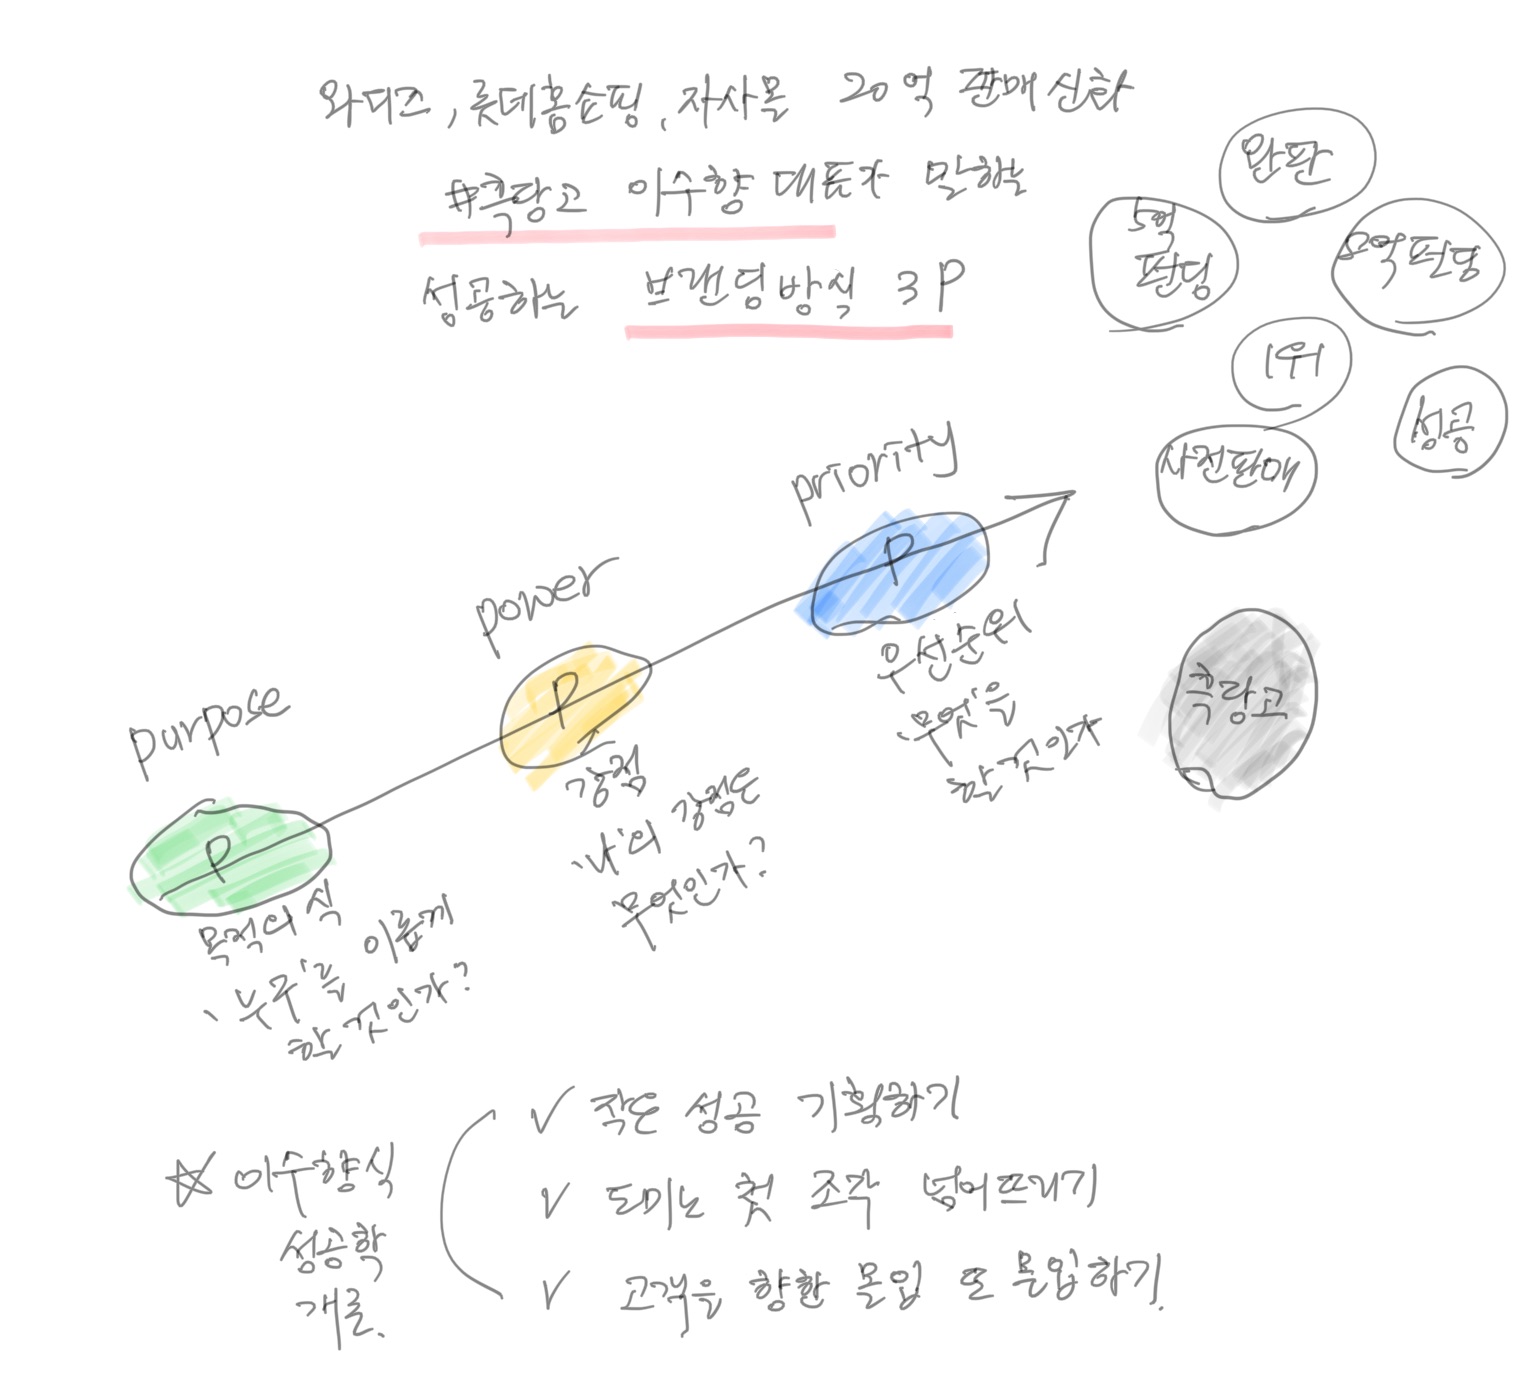 와디즈, 롯데홈쇼핑, 자사몰 20억 판매신화
#측랑고 이수향 대표가 말하는
성공하는 브랜딩방식 3P
완판
5억
펀딩
5억펀딩
1위
성공
사전판매
priority
P
우선순위
'무엇'을
할 것인가
power
P
강점
'나'의 강점은
무엇인가?
purpose
P
목적의식
'누구'를 이롭게
할 것인가?
측랑고
☆ 이수향식
성공학
개론.
✓ 작은 성공 기획하기
✓ 도미노 첫 조각 넘어뜨리기
✓ 고객을 향한 몰입 또 몰입하기.